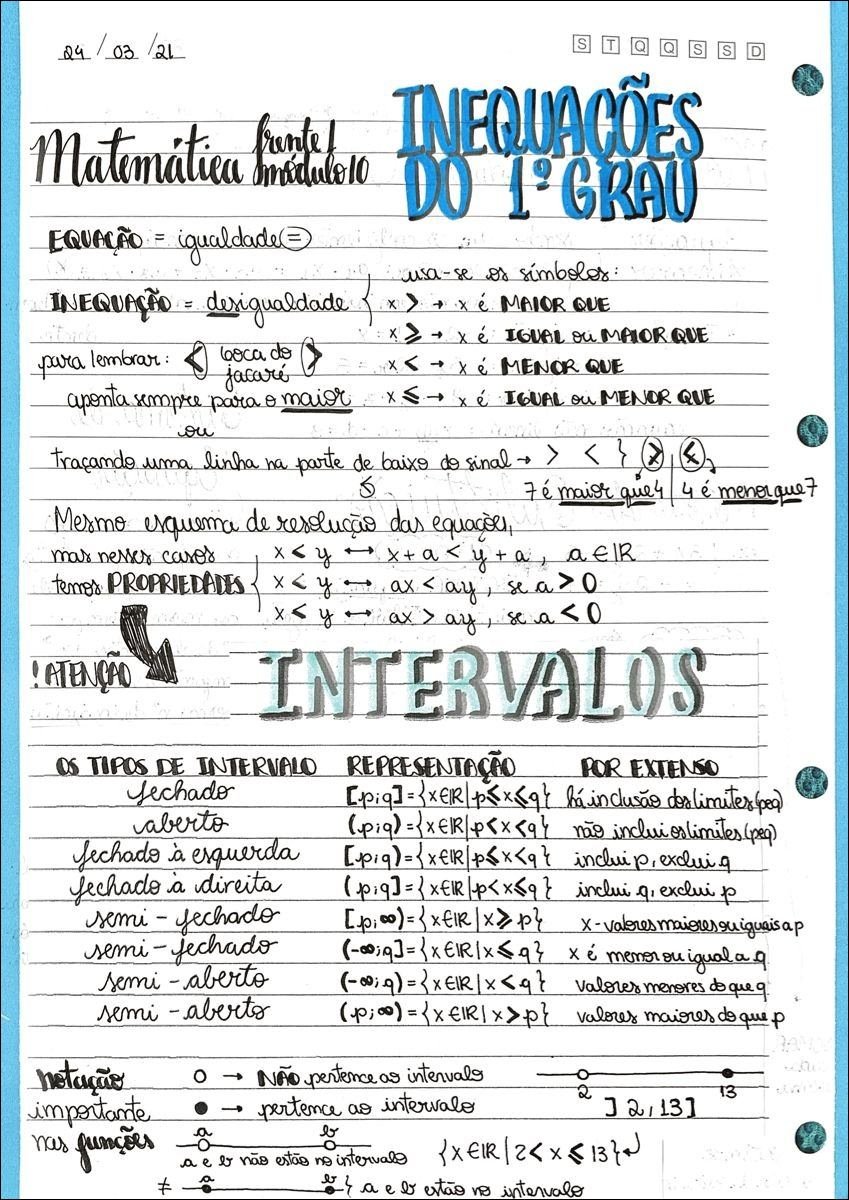 24/03/21
S T Q Q S S D
Matemática frente 1 módulo 10
INEQUAÇÕES
DO 1º GRAU
EQUAÇÃO = igualdade (=)
usa-se os símbolos:
INEQUAÇÃO = desigualdade { x > → x é MAIOR QUE
x ⩾ → x é IGUAL ou MAIOR QUE
para lembrar: < boca do jacaré >
x < → x é MENOR QUE
aponta sempre para o maior
x ⩽ → x é IGUAL ou MENOR QUE
ou
traçando uma linha na parte de baixo do sinal → > < } > <
7 é maior que 4 | 4 é menor que 7
Mesmo esquema de resolução das equações,
mas nesses casos { x < y ↔ x + a < y + a, a ∈ IR
temos PROPRIEDADES { x < y ↔ ax < ay, se a > 0
x < y ↔ ax > ay, se a < 0
! ATENÇÃO
INTERVALOS
OS TIPOS DE INTERVALO REPRESENTAÇÃO POR EXTENSO
fechado [p;q] = {x∈IR | p⩽x⩽q} há inclusão dos limites (p e q)
aberto (p;q) = {x∈IR | p<x<q} não inclui os limites (p e q)
fechado à esquerda [p;q) = {x∈IR | p⩽x<q} inclui p, exclui q
fechado à direita (p;q] = {x∈IR | p<x⩽q} inclui q, exclui p
semi-fechado [p;∞) = {x∈IR | x⩾p} x - valores maiores ou iguais a p
semi-fechado (-∞;q] = {x∈IR | x⩽q} x é menor ou igual a q
semi-aberto (-∞;q) = {x∈IR | x<q} valores menores do que q
semi-aberto (p;∞) = {x∈IR | x>p} valores maiores do que p
notação ○ → NÃO pertence ao intervalo
2 13
importante ● → pertence ao intervalo
]2,13]
nas funções
a b
a e b não estão no intervalo
{x∈IR | 2<x⩽13}
≠ a b } a e b estão no intervalo